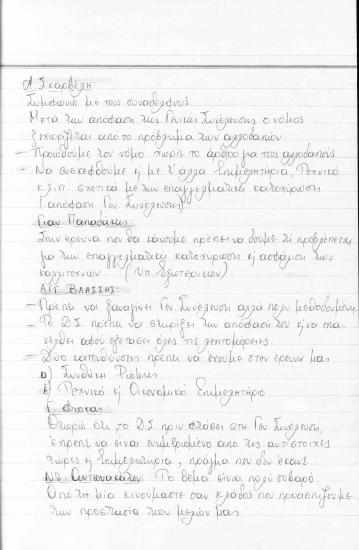 Λ. Σκαρβέλη:
Συμφωνώ με τους συναδέλφους
Μετά την απόφαση της Γενικής Συνέλευσης ο νόμος
ξεχωρίζεται από το πρόβλημα των αλλοδαπών.
- Προωθούμε τον νόμο χωρίς το άρθρο για τους αλλοδαπούς
- Να συσκεφθούμε ή με τ' άλλα Επιμελητήρια, Τεχνικό
κ.λ.π. σχετικά με την επαγγελματική κατοχύρωση
(απόφαση Γεν. Συνέλευσης)
Γιαν. Παπαδάκης
Στην έρευνα που θα κάνουμε πρέπει να δούμε τι προβλέπεται
για την επαγγελματική κατοχύρωση ή ασφάλιση των
καλλιτεχνών (Υπ. Εξωτερικών).
ΑΓΓ. ΒΛΑΣΣΗΣ:
- Πρέπει να ξαναγίνει Γεν. Συνέλευση αλλά πολύ μεθοδευμένη
- Το Δ.Σ. πρέπει να στηρίξει την απόφαση του ή να επα-
νέλθει αφού εξετάσει όλες τις λεπτομέρειες.
- Δύο κατευθύνσεις πρέπει να έχουμε στην έρευνά μας
α) Συνθήκη Ρώμης
β) Τεχνικό ή Οικονομικό Επιμελητήριο
Γ. Φώκας
Θεωρώ ότι το Δ.Σ. πριν φτάσει στη Γεν. Συνέλευση,
έπρεπε να είναι ενημερωμένο από τις αντίστοιχες
χώρες ή Επιμελητήρια, πράγμα που δεν έκανε
Το θέμα είναι πολύ σοβαρό.
Από τη μία κινούμαστε σαν κλάδος που προασπίζουμε
την προστασία των μελών μας